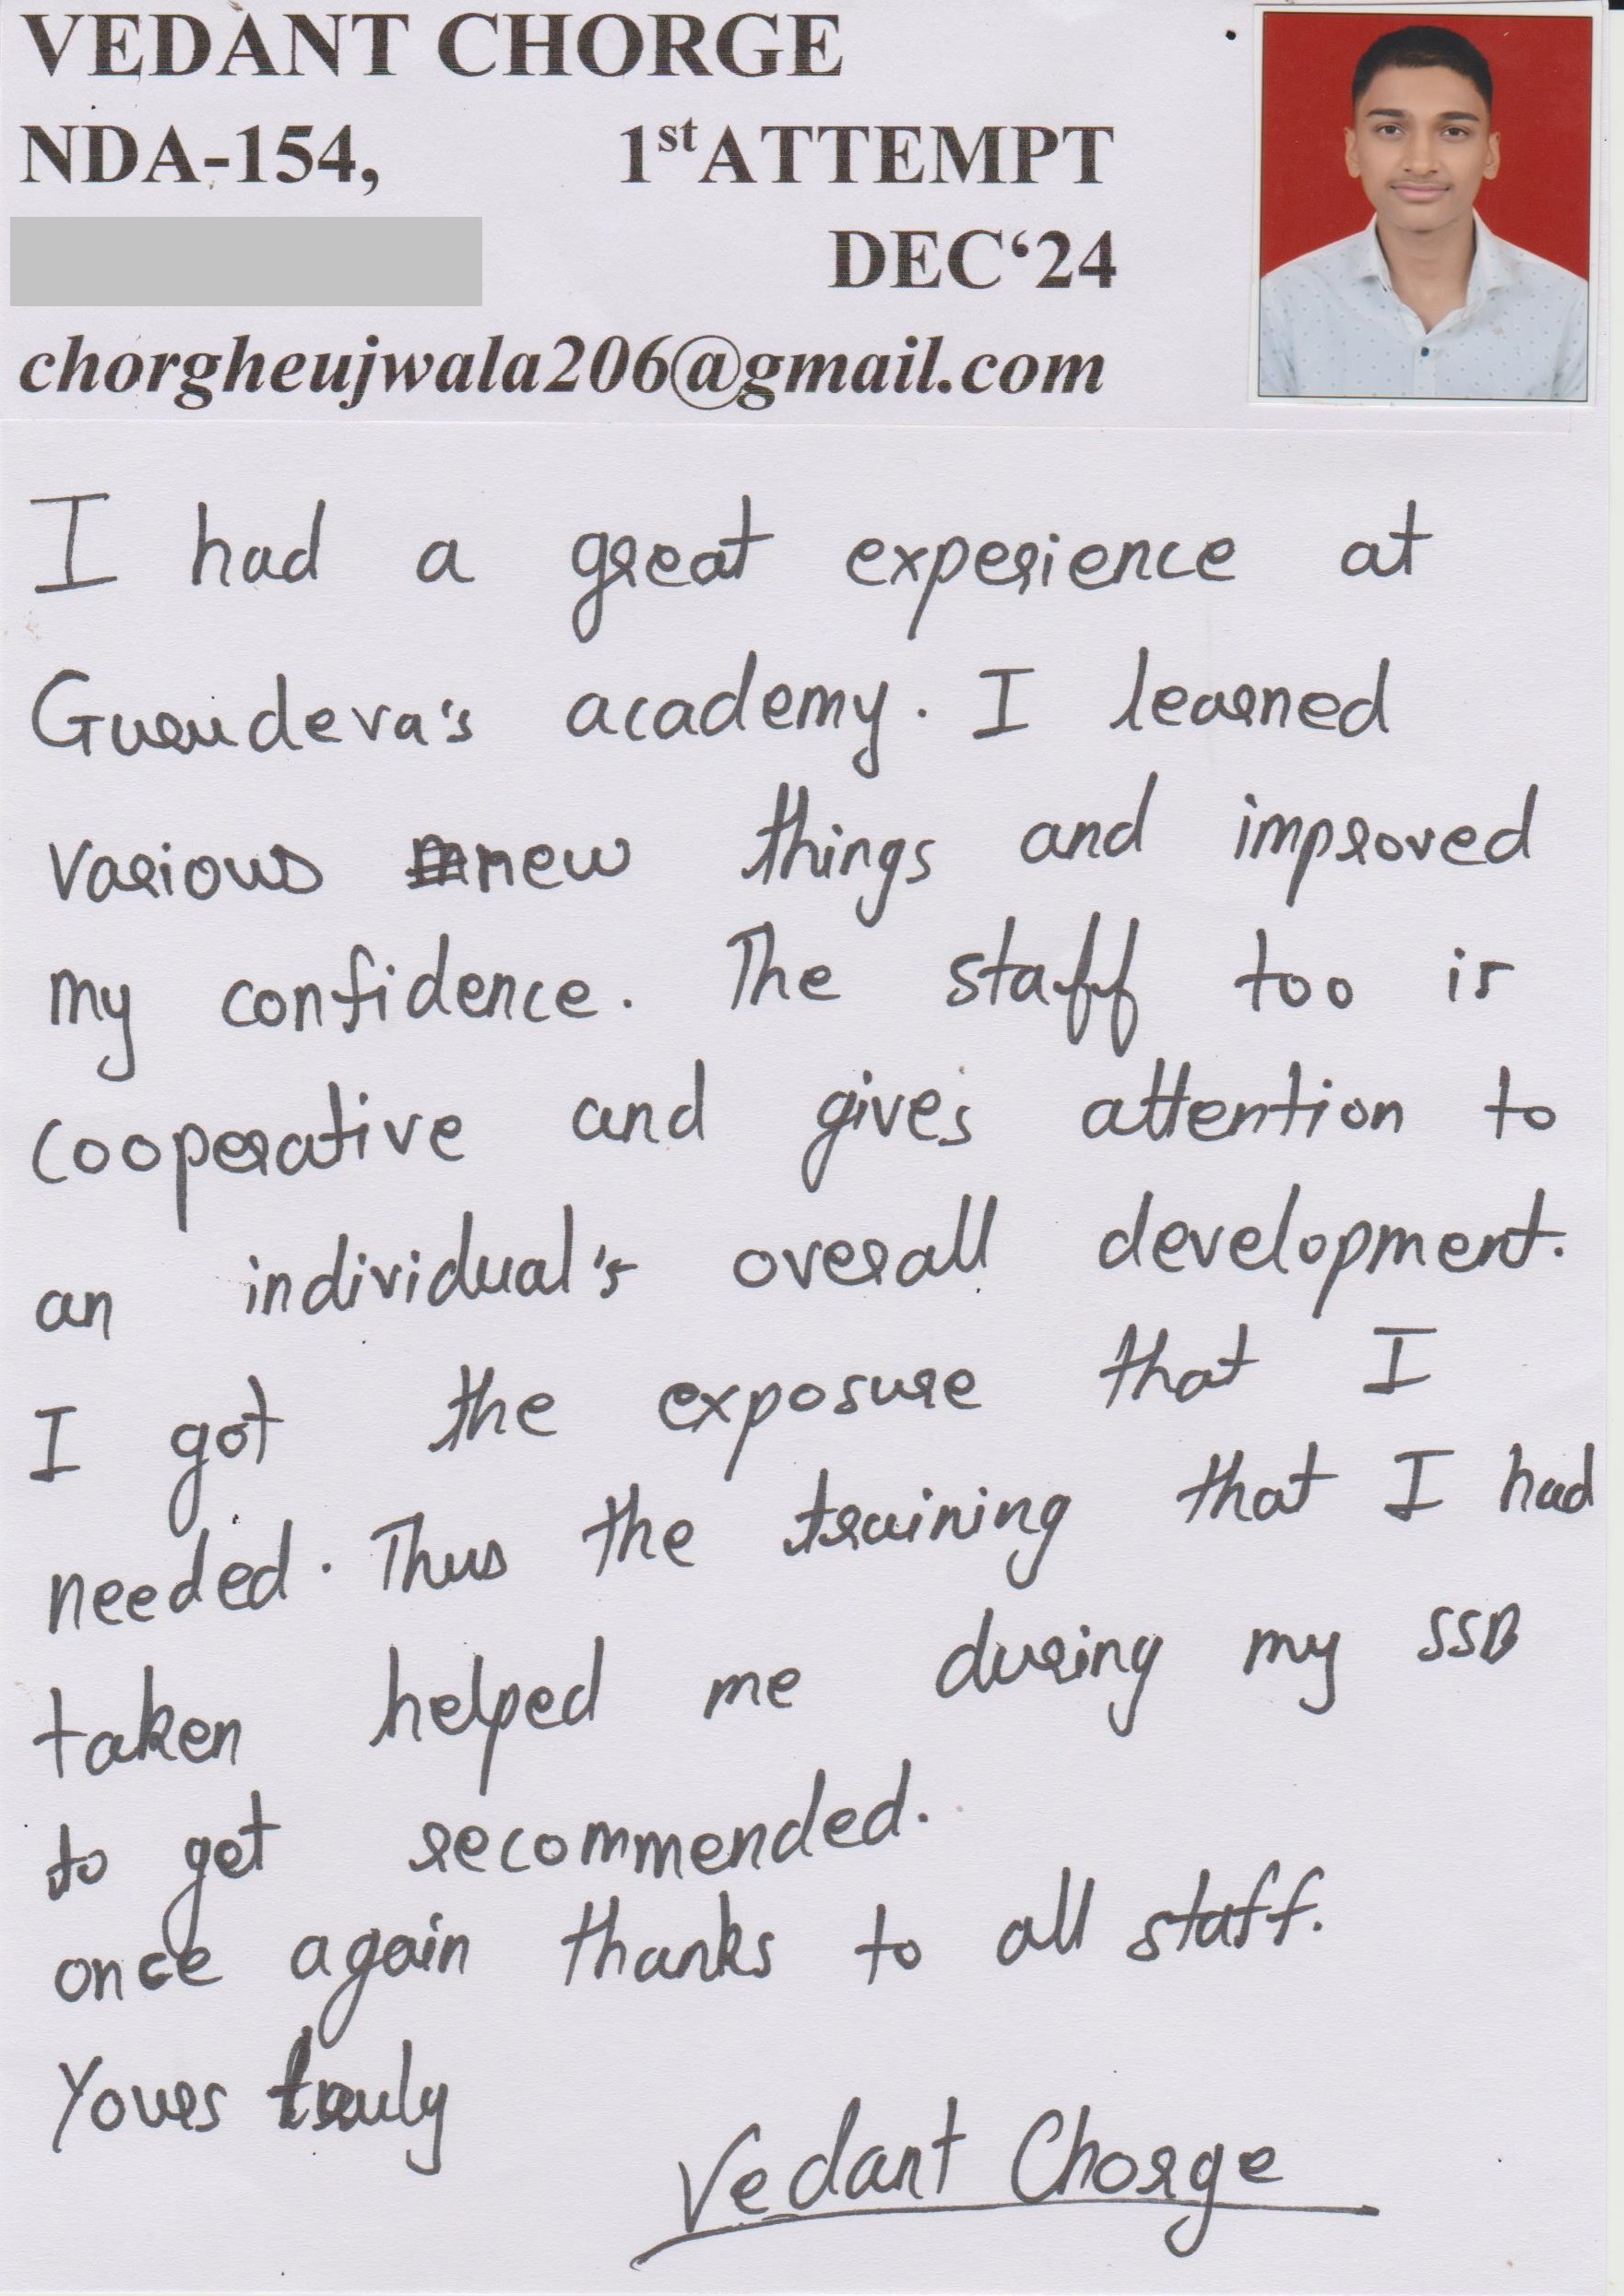 VEDANT CHORGE
NDA-154, 1st ATTEMPT
DEC‘24
chorgheujwala206@gmail.com
I had a great experience at
Gurudeva's academy. I learned
various new things and improved
my confidence. The staff too is
cooperative and gives attention to
an individual's overall development.
I got the exposure that I
needed. Thus the training that I had
taken helped me during my SSB
to get recommended.
once again thanks to all staff.
Yours truly
Vedant Chorge